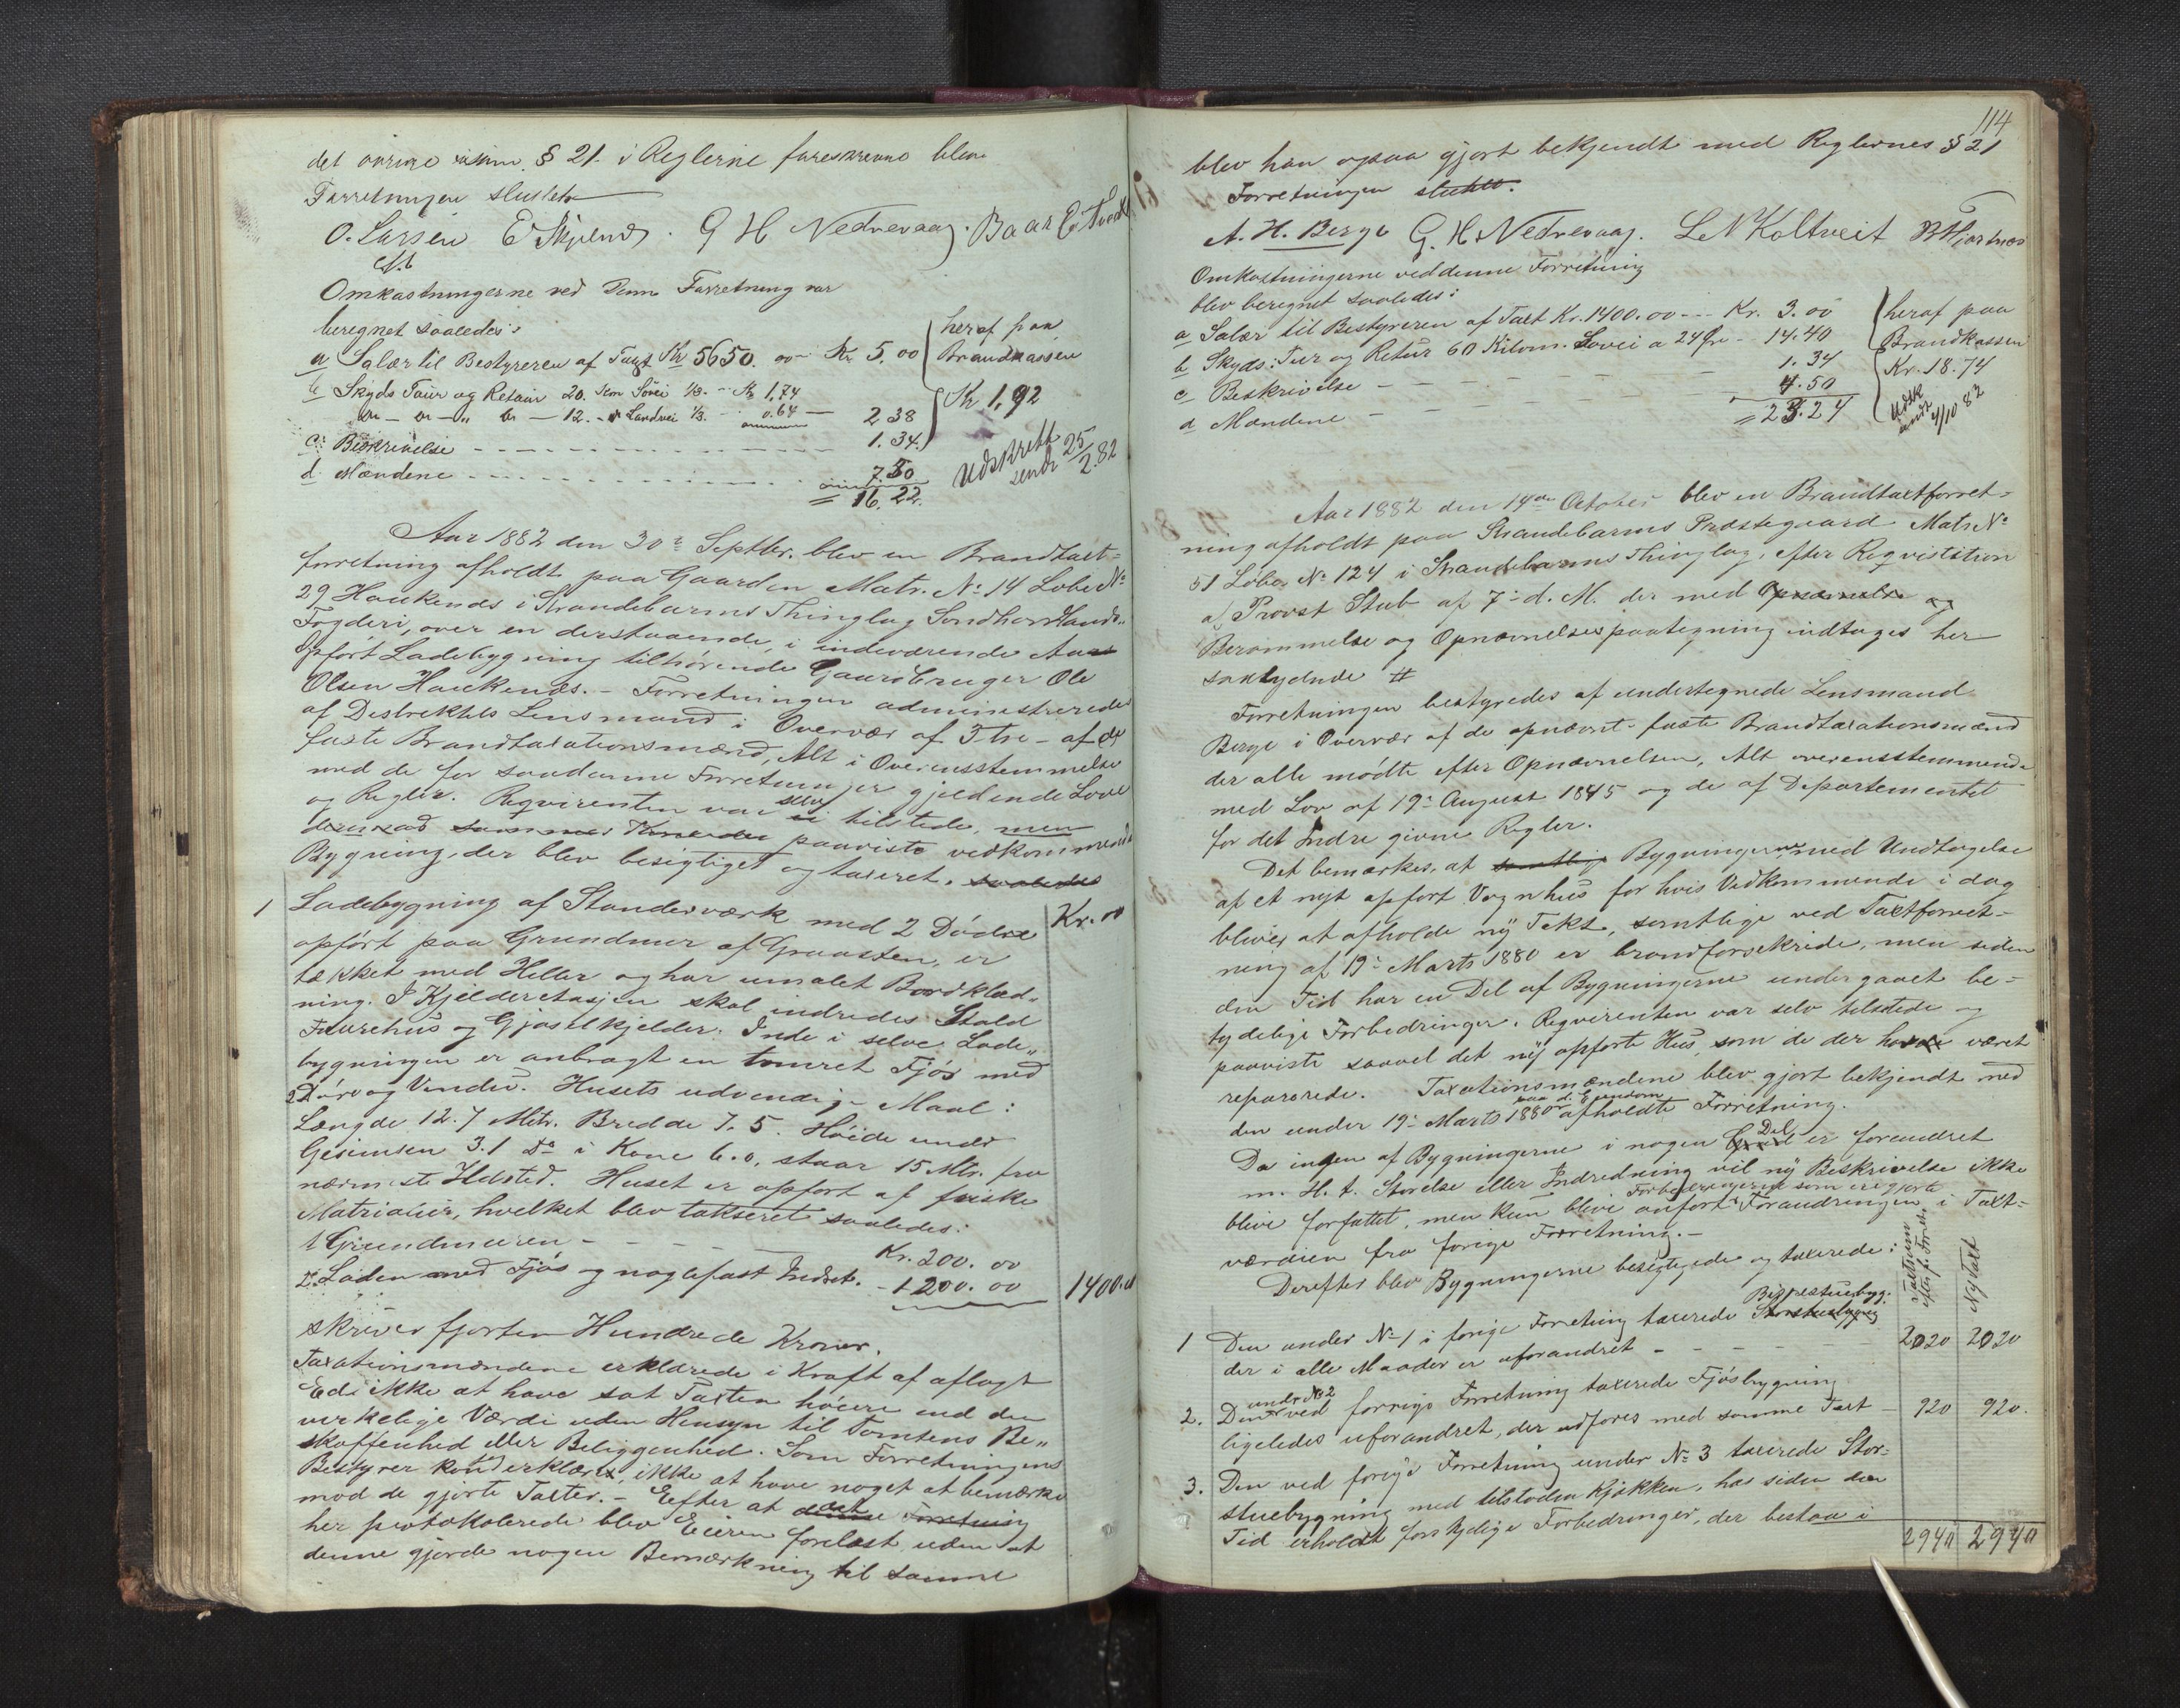 det øvrige § 21. i Reglerne foreskrevne blev
Forretningen sluttet
O. Larsen E Skjelnes. G H Nedrevaag. Baar E Tved
Omkostningerne ved denne Forretning var
beregnet saaledes:
a Salær til Bestyreren af Taxt Kr 5650. 00 - Kr 5. 00 heraf paa
Brandkassen
b Skyds Tour og Retour 20. Km Søvei 1/3. - Kr 1,74
12. Landvei 1/3. 0.64 — 2 38 Kr 1,92
c: Beskrivelse - - - - 1. 34.
d. Mændene - - - - 7.50
= 16. 22.
Udskrift sendt 25/2.82
Aar 1882 den 30te Septbr. blev en Brandtaxt-
forretning afholdt paa Gaarden Matr. No 14 Løbe No
29 Haukenæs i Strandebarms Thinglag Søndhordlands
Fogderi, over en derstaaende, i indeværende Aar
Opført Ladebygning tilhørende Gaardbruger Ole
Olsen Haukenæs. - Forretningen administreredes
af Destriktets Lensmand i Overvær af 3 tre - af de
faste Brandtaxationsmænd, Alt i Overensstemmelse
med de for saadanne Forretninger gjeldende Love
og Regler. Reqvirenten var selv tilstede, men
paaviste vedkommende
Bygning, der blev besigtiget og taxeret. saaledes
1 Ladebygning af Standerværk med 2 Dødre Kr. 00
opført paa Grundmur af Graasten, er
tækket med Heller og har umalet Bordklæd-
ning. I Kjelderetasjen skal indredes Stald
Faurehus og Gjødselkjelder. Inde i selve Lade-
bygningen er anbragt en tømret Fjøs med
2 Døre og Vindu. Husets udvendige Maal:
Længde 12.7 Mtr. Bredde 7.5. Høide under
Gesimsen 3.1 Do i Rone 6.0, staar 15 Mtr. fra
nærmeste Ildsted. Huset er opført af friske
Matrialier, hvilket blev takseret saaledes:
1 Grundmuren - - - - Kr. 200. 00
2. Laden med Fjøs og naglefast Indret. - 1200. 00 1400.00
skriver fjorten Hundrede Kroner.
Taxationsmændene erklærede i Kraft af aflagt
Ed ikke at have sat Taxten høiere end den
virkelige Værdi uden Hensyn til Tomtens Be-
skaffenhed eller Beliggenhed. Som Forretningens
Bestyrer erklæres, ikke at have noget at bemærke
mod de gjorte Taxter. - Efter at det Forretning
her protokolerede blev Eieren forelæst uden at
denne gjorde nogen Bemærkning til samme
114
blev han ogsaa gjort bekjendt med Reglernes § 21
Forretningen sluttet.
A. H. Berge G. H. Nedrevaag. L N Koltveit B Hjartnæs
Omkostningerne ved denne Forretning
blev beregnet saaledes:
a Salær til Bestyreren af Taxt Kr. 1400.00 --- Kr. 3. 00 heraf paa
b Skyds: Tur og Retur 60 Kilom. Søvei a 24 Øre - 14.40 Brandkassen
c Beskrivelse - - - - 1. 34 Kr. 18.74
d Mændene - - - - 4.50
= 23.24
Udsk sendt 4/10 82
Aar 1882 den 14de October blev en Brandtaxtforret-
ning afholdt paa Strandebarms Præstegaard Matr No
51 Løbe No 124 i Strandebarms Thinglag, efter Reqvisition
af Provst Stub af 7de d. M. der med Opnævnelse og
Berammelse og Opnævnelsespaategning indtages her
saalydende #
Forretningen bestyredes af undertegnede Lensmand
Berge i Overvær af de opnævnte faste Brandtaxationsmænd
der alle mødte efter Opnævnelsen, Alt overensstemmende
med Lov af 19de August 1845 og de af Departementet
for det Indre givne Regler.
Det bemærkes, at samtlige Bygningerne med Undtagelse
af et nyt opført Vognhus for hvis Vedkommende i dag
bliver at afholde ny Takst, samtlige ved Taxtforret-
ning af 19de Marts 1880 er brandforsekrede, men siden
den Tid har en Del af Bygningerne undergaaet be-
tydelige Forbedringer. Reqvirenten var selv tilstede og
paaviste saavel det ny opførte Hus, som de der havde været
reparerede. Taxationsmændene blev gjort bekjendt med
den under 19de Marts 1880 paa d. Eiendom afholdte Forretning.
Da ingen af Bygningerne i nogen Grad Del er forandret
m. H. t. Størelse eller Indredning vil ny Beskrivelse ikke
blive forfattet, men kun blive anført Forbedringerne som ere gjorte Forandringen i Taxt-
værdien fra forige Forretning. -
Derefter blev Bygningerne besigtigede og taxerede: Taxtsum efter f. Forret. Ny taxt
1 Den under No 1 i forige Forretning taxerede Storstuebygning Bispestuebyg.
der i alle Maader er uforandret - - - - 2020 2020
2. Den under No 2 ved forrige Forretning taxerede Fjøsbygning
ligeledes uforandret, der udføres med samme Taxt - 920 920.
3. Den ved forige Forretning under No 3 taxerede Stor-
stuebygning med tilstødende Kjøkken, har siden den
Tid erholdt forskjelige Forbedringer, der bestaa i
2940 2940